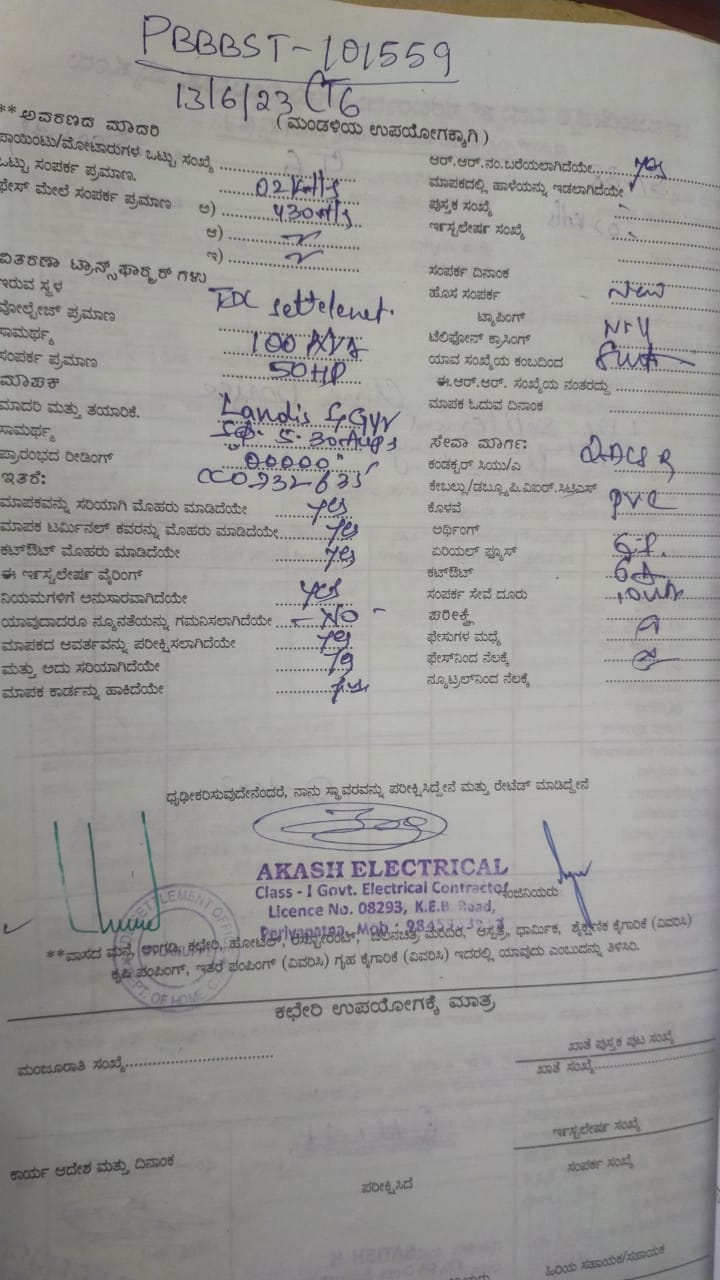 PBBBST-101559
13/6/23 CT6
**ಆವರಣದ ಮಾದರಿ
(ಮಂಡಳಿಯ ಉಪಯೋಗಕ್ಕಾಗಿ)
ಪಾಯಿಂಟು/ಮೋಟಾರುಗಳ ಒಟ್ಟು ಸಂಖ್ಯೆ
ಒಟ್ಟು ಸಂಪರ್ಕ ಪ್ರಮಾಣ.
ಫೇಸ್ ಮೇಲೆ ಸಂಪರ್ಕ ಪ್ರಮಾಣ ಅ)
ಆ)
ಇ)
ವಿತರಣಾ ಟ್ರಾನ್ಸ್‌ಫಾರ್ಮರ್ ಗಳು
ಇರುವ ಸ್ಥಳ
ವೋಲ್ಟೇಜ್ ಪ್ರಮಾಣ
ಸಾಮರ್ಥ್ಯ 100 KVA
ಸಂಪರ್ಕ ಪ್ರಮಾಣ 50HP
ಮಾಪಕ
ಮಾದರಿ ಮತ್ತು ತಯಾರಿಕೆ. Landis & Gyr
ಸಾಮರ್ಥ್ಯ 5-30 Amps
ಪ್ರಾರಂಭದ ರೀಡಿಂಗ್ "00000"
ಇತರೆ:
ಮಾಪಕವನ್ನು ಸರಿಯಾಗಿ ಮೊಹರು ಮಾಡಿದೆಯೇ yes
ಮಾಪಕ ಟರ್ಮಿನಲ್ ಕವರನ್ನು ಮೊಹರು ಮಾಡಿದೆಯೇ yes
ಕಟ್‌ಔಟ್ ಮೊಹರು ಮಾಡಿದೆಯೇ yes
ಈ ಇನ್ಸ್ಟಲೇಷನ್ ವೈರಿಂಗ್
ನಿಯಮಗಳಿಗೆ ಅನುಸಾರವಾಗಿದೆಯೇ yes
ಯಾವುದಾದರೂ ನ್ಯೂನತೆಯನ್ನು ಗಮನಿಸಲಾಗಿದೆಯೇ - NO -
ಮಾಪಕದ ಆವರ್ತವನ್ನು ಪರೀಕ್ಷಿಸಲಾಗಿದೆಯೇ yes
ಮತ್ತು ಅದು ಸರಿಯಾಗಿದೆಯೇ
ಮಾಪಕ ಕಾರ್ಡನ್ನು ಹಾಕಿದೆಯೇ
ಆರ್.ಆರ್.ನಂ.ಬರೆಯಲಾಗಿದೆಯೇ yes
ಮಾಪಕದಲ್ಲಿ ಹಾಳೆಯನ್ನು ಇಡಲಾಗಿದೆಯೇ
ಪುಸ್ತಕ ಸಂಖ್ಯೆ
ಇನ್ಸ್ಟಲೇಷನ್ ಸಂಖ್ಯೆ
ಸಂಪರ್ಕ ದಿನಾಂಕ
ಹೊಸ ಸಂಪರ್ಕ New
ಟ್ಯಾಪಿಂಗ್
ಟೆಲಿಫೋನ್ ಕ್ರಾಸಿಂಗ್
ಯಾವ ಸಂಖ್ಯೆಯ ಕಂಬದಿಂದ
ಈ.ಆರ್.ಆರ್. ಸಂಖ್ಯೆಯ ನಂತರದ್ದು
ಮಾಪಕ ಓದುವ ದಿನಾಂಕ
ಸೇವಾ ಮಾರ್ಗ:
ಕಂಡಕ್ಟರ್ ಸಿಯು/ಎ
ಕೇಬಲ್ಲು/ಡಬ್ಲ್ಯೂಪಿ.ವಿಐಆರ್.ಸಿಟಿಎಸ್
ಕೊಳವೆ PVC
ಅರ್ಥಿಂಗ್
ಏರಿಯಲ್ ಫ್ಯೂಸ್
ಕಟ್‌ಔಟ್
ಸಂಪರ್ಕ ಸೇವೆ ದೂರು
ಪರೀಕ್ಷೆ
ಫೇಸುಗಳ ಮಧ್ಯೆ
ಫೇಸ್‌ನಿಂದ ನೆಲಕ್ಕೆ
ನ್ಯೂಟ್ರಲ್‌ನಿಂದ ನೆಲಕ್ಕೆ
ಧೃಢೀಕರಿಸುವುದೇನೆಂದರೆ, ನಾನು ಸ್ಥಾವರವನ್ನು ಪರೀಕ್ಷಿಸಿದ್ದೇನೆ ಮತ್ತು ರೇಟೆಡ್ ಮಾಡಿದ್ದೇನೆ
AKASH ELECTRICAL
Class - I Govt. Electrical Contractor
Licence No. 08293, K.E.B. Road,
Periyapatna, Mob :
**ವಾಸದ ಮನೆ, ಅಂಗಡಿ, ಕಛೇರಿ, ಹೋಟೆಲ್, ರೆಸ್ಟೋರೆಂಟ್, ಚಲನಚಿತ್ರ ಮಂದಿರ, ಆಸ್ಪತ್ರೆ, ಧಾರ್ಮಿಕ, ಶೈಕ್ಷಣಿಕ ಕೈಗಾರಿಕೆ (ವಿವರಿಸಿ)
ಕೃಷಿ ಪಂಪಿಂಗ್, ಇತರೆ ಪಂಪಿಂಗ್ (ವಿವರಿಸಿ) ಗೃಹ ಕೈಗಾರಿಕೆ (ವಿವರಿಸಿ) ಇದರಲ್ಲಿ ಯಾವುದು ಎಂಬುದನ್ನು ತಿಳಿಸಿರಿ.
ಕಛೇರಿ ಉಪಯೋಗಕ್ಕೆ ಮಾತ್ರ
ಮಂಜೂರಾತಿ ಸಂಖ್ಯೆ
ಖಾತೆ ಪುಸ್ತಕ ಪುಟ ಸಂಖ್ಯೆ
ಖಾತೆ ಸಂಖ್ಯೆ
ಇನ್ಸ್ಟಲೇಷನ್ ಸಂಖ್ಯೆ
ಕಾರ್ಯ ಆದೇಶ ಮತ್ತು ದಿನಾಂಕ
ಸಂಪರ್ಕ ಸಂಖ್ಯೆ
ಪರೀಕ್ಷಿಸಿದೆ
ಹಿರಿಯ ಸಹಾಯಕ/ಸಹಾಯಕ